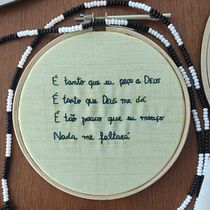 É tanto que eu peço a Deus
É tanto que Deus me dá
É tão pouco que eu mereço
Nada me faltará